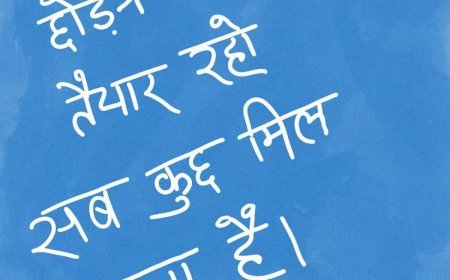 तैयार रहो
सब कुछ मिल
है।